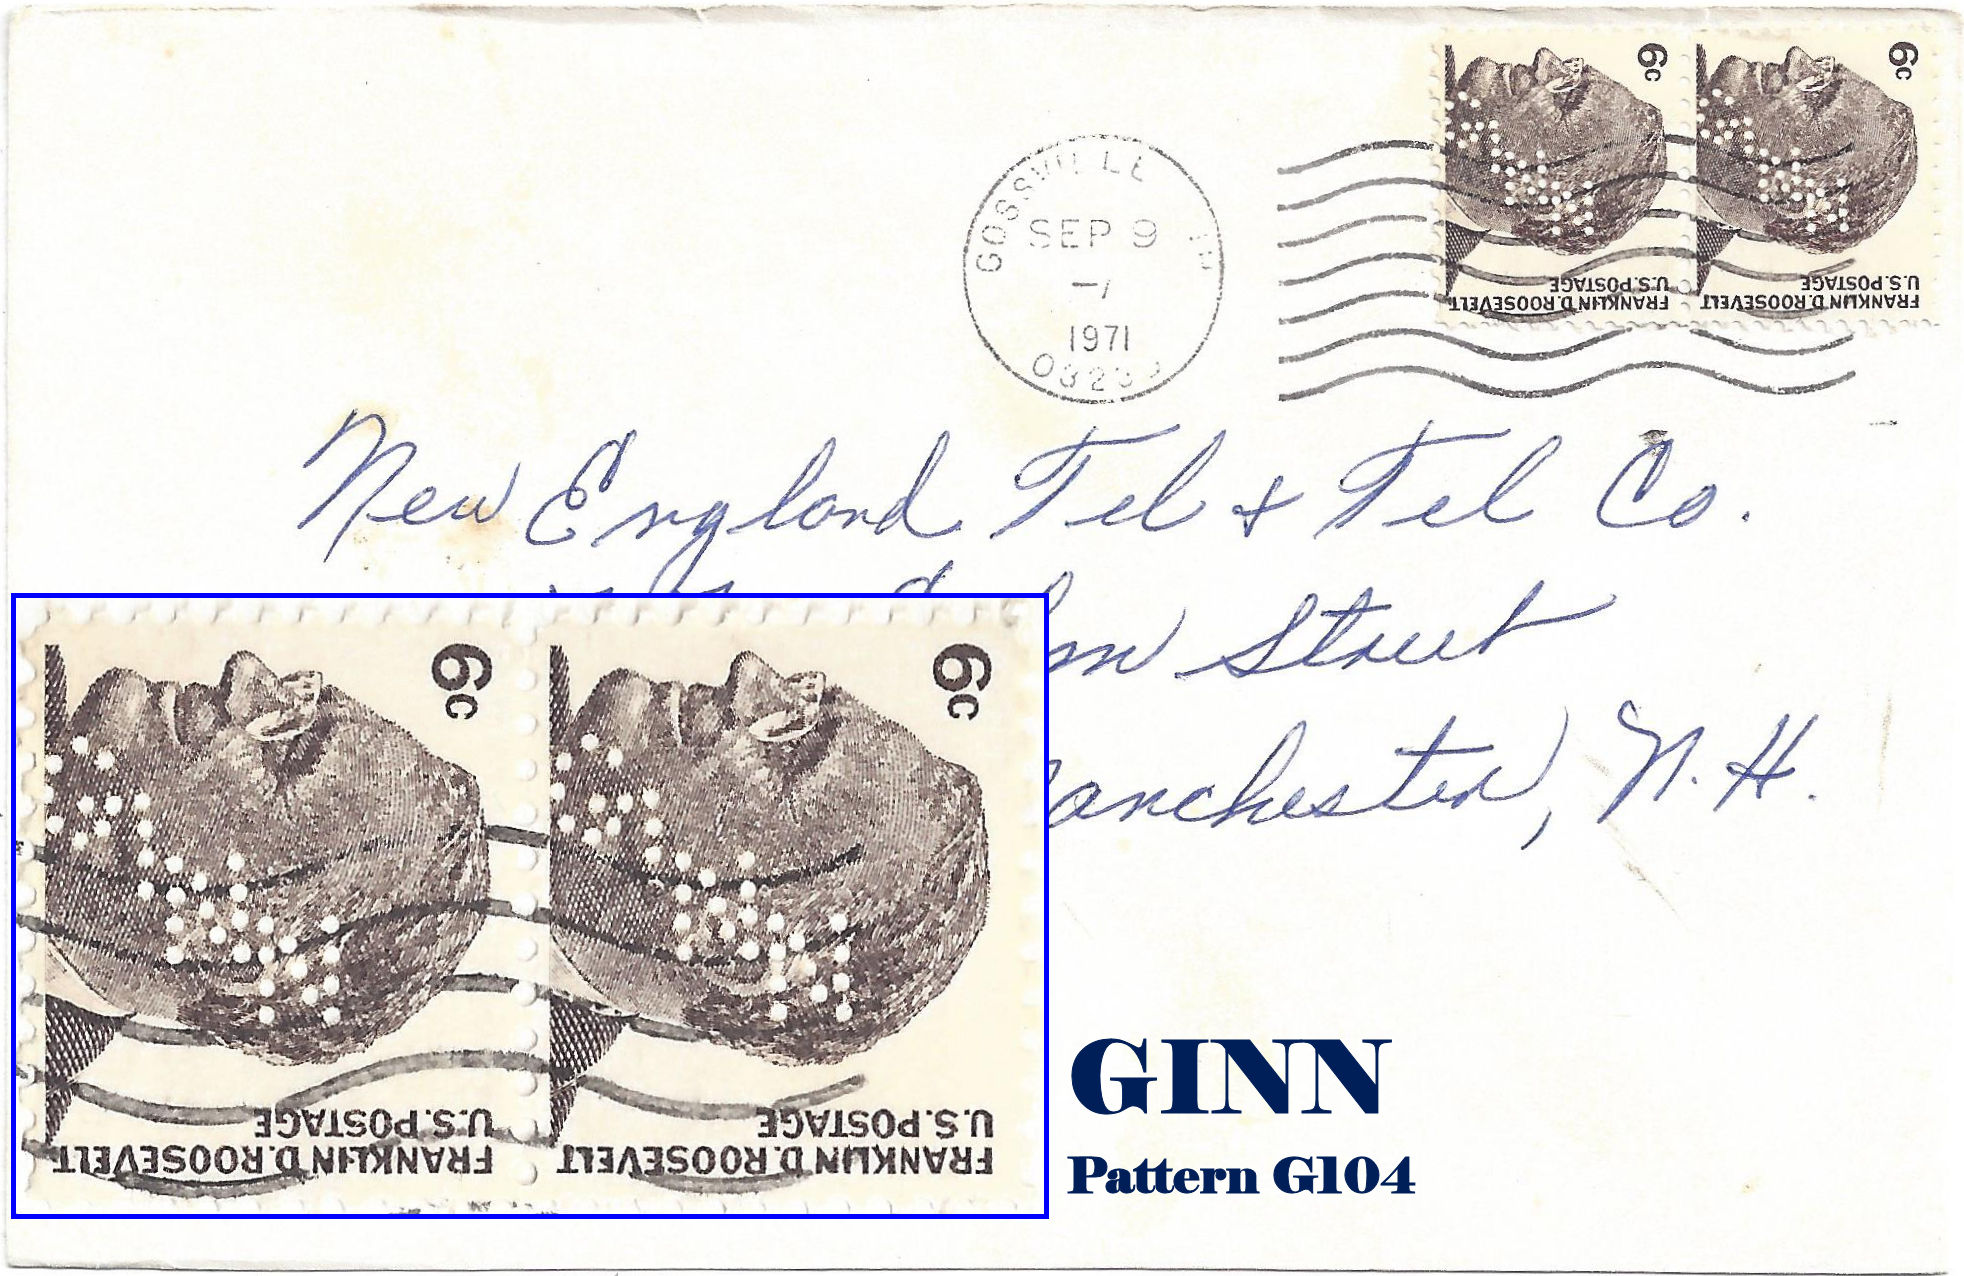 6c 6c
GOSSVILLE
SEP 9
1971
U.S. POSTAGE U.S. POSTAGE
FRANKLIN D. ROOSEVELT FRANKLIN D. ROOSEVELT
New England Tel & Tel Co.
Street
, N.H.
6c 6c
U.S. POSTAGE U.S. POSTAGE
FRANKLIN D. ROOSEVELT FRANKLIN D. ROOSEVELT
GINN
Pattern G104